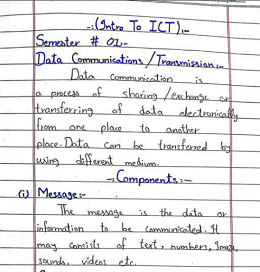 -:(Intro To ICT):-
Semester # 01:-
Data Communications/Transmission:-
Data communication is
a process of sharing/exchange or
transferring of data electronically
from one place to another
place. Data can be transferred by
using different medium.
-:Components:-
(i) Message:-
The message is the data or
information to be communicated. It
may consists of text, numbers, Image,
sounds, videos etc.